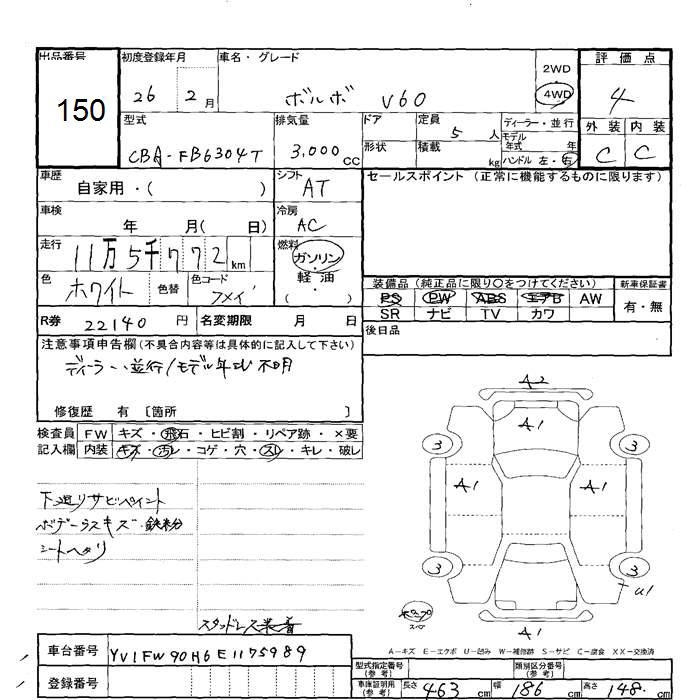 出品番号 初度登録年月 車名・グレード 評価点
150 26 2月 ボルボ V60 2WD 4WD 4
型式 排気量 ドア 定員 5人 ディーラー・並行 外装 内装
CBA-FB6304T 3,000cc 形状 積載 kg モデル年式 年 ハンドル 左・右 C C
車歴 自家用・( ) シフト AT セールスポイント (正常に機能するものに限ります)
車検 年 月( 日) 冷房 AC
走行 11万5千772km 燃料 ガソリン・軽油
色 ホワイト 色替 色コード 装備品 (純正品に限り〇をつけてください) 新車保証書
PS PW ABS エアB AW 有・無
SR ナビ TV カワ
R券 22140円 名変期限 月 日 後日品
注意事項申告欄(不具合内容等は具体的に記入して下さい)
ディーラー、並行/モデル年式 不明
修復歴 有 〔箇所 〕
検査員 FW キズ・飛石・ヒビ割・リペア跡・×要
記入欄 内装 キズ・汚レ・コゲ・穴・スレ・キレ・破レ
A2
A1
3 3
A1 A1
下廻りサビペイント
ボデーラスキズ・鉄粉
シートヘタリ
3 3
U1
スペア
スタッドレス装着 A1
A-キズ E-エクボ U-凹み W-補修跡 S-サビ C-腐食 XX-交換済
車台番号 YV1FW90H6E1175989
型式指定番号(参考) 類別区分番号(参考)
登録番号 車庫証明用(参考) 長さ 463cm 幅 186cm 高さ 148cm